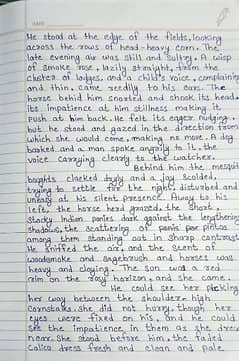 He stood at the edge of the fields, looking
across the rows of head-heavy corn. The
late evening air was still and sultry. A wisp
of smoke rose, lazily straight, from the
cluster of lodges, and a child's voice, complaining
and thin, came reedily to his ears. The
horse behind him snorted and shook its head,
its impatience at him stillness making it
push at him back. He felt its eager nudging,
but he stood and gazed in the direction from
which she would come, making no move. A dog
barked and a man spoke angrily to it, the
voice carrying clearly to the watcher.
Behind him the mesquit
boughs clacked dryly and a jay scolded,
trying to settle for the night, disturbed and
uneasy at his silent presence. Away to his
left, the horse herd grazed, the short
stocky Indian ponies dark against the lengthening
shadows, the scattering of pinto
among them standing out in sharp contrast.
He sniffed the air, and the scent of
woodsmoke and sagebrush and horses was
heavy and cloying. The sun was a red
rim on the horizon, and she came.
He could see her picking
her way between the shoulder-high
cornstalks. She did not hurry, though her
eyes were fixed on his, and he could
see the impatience in them as she drew
near. She stood before him, the faded
calico dress fresh and clean and pale